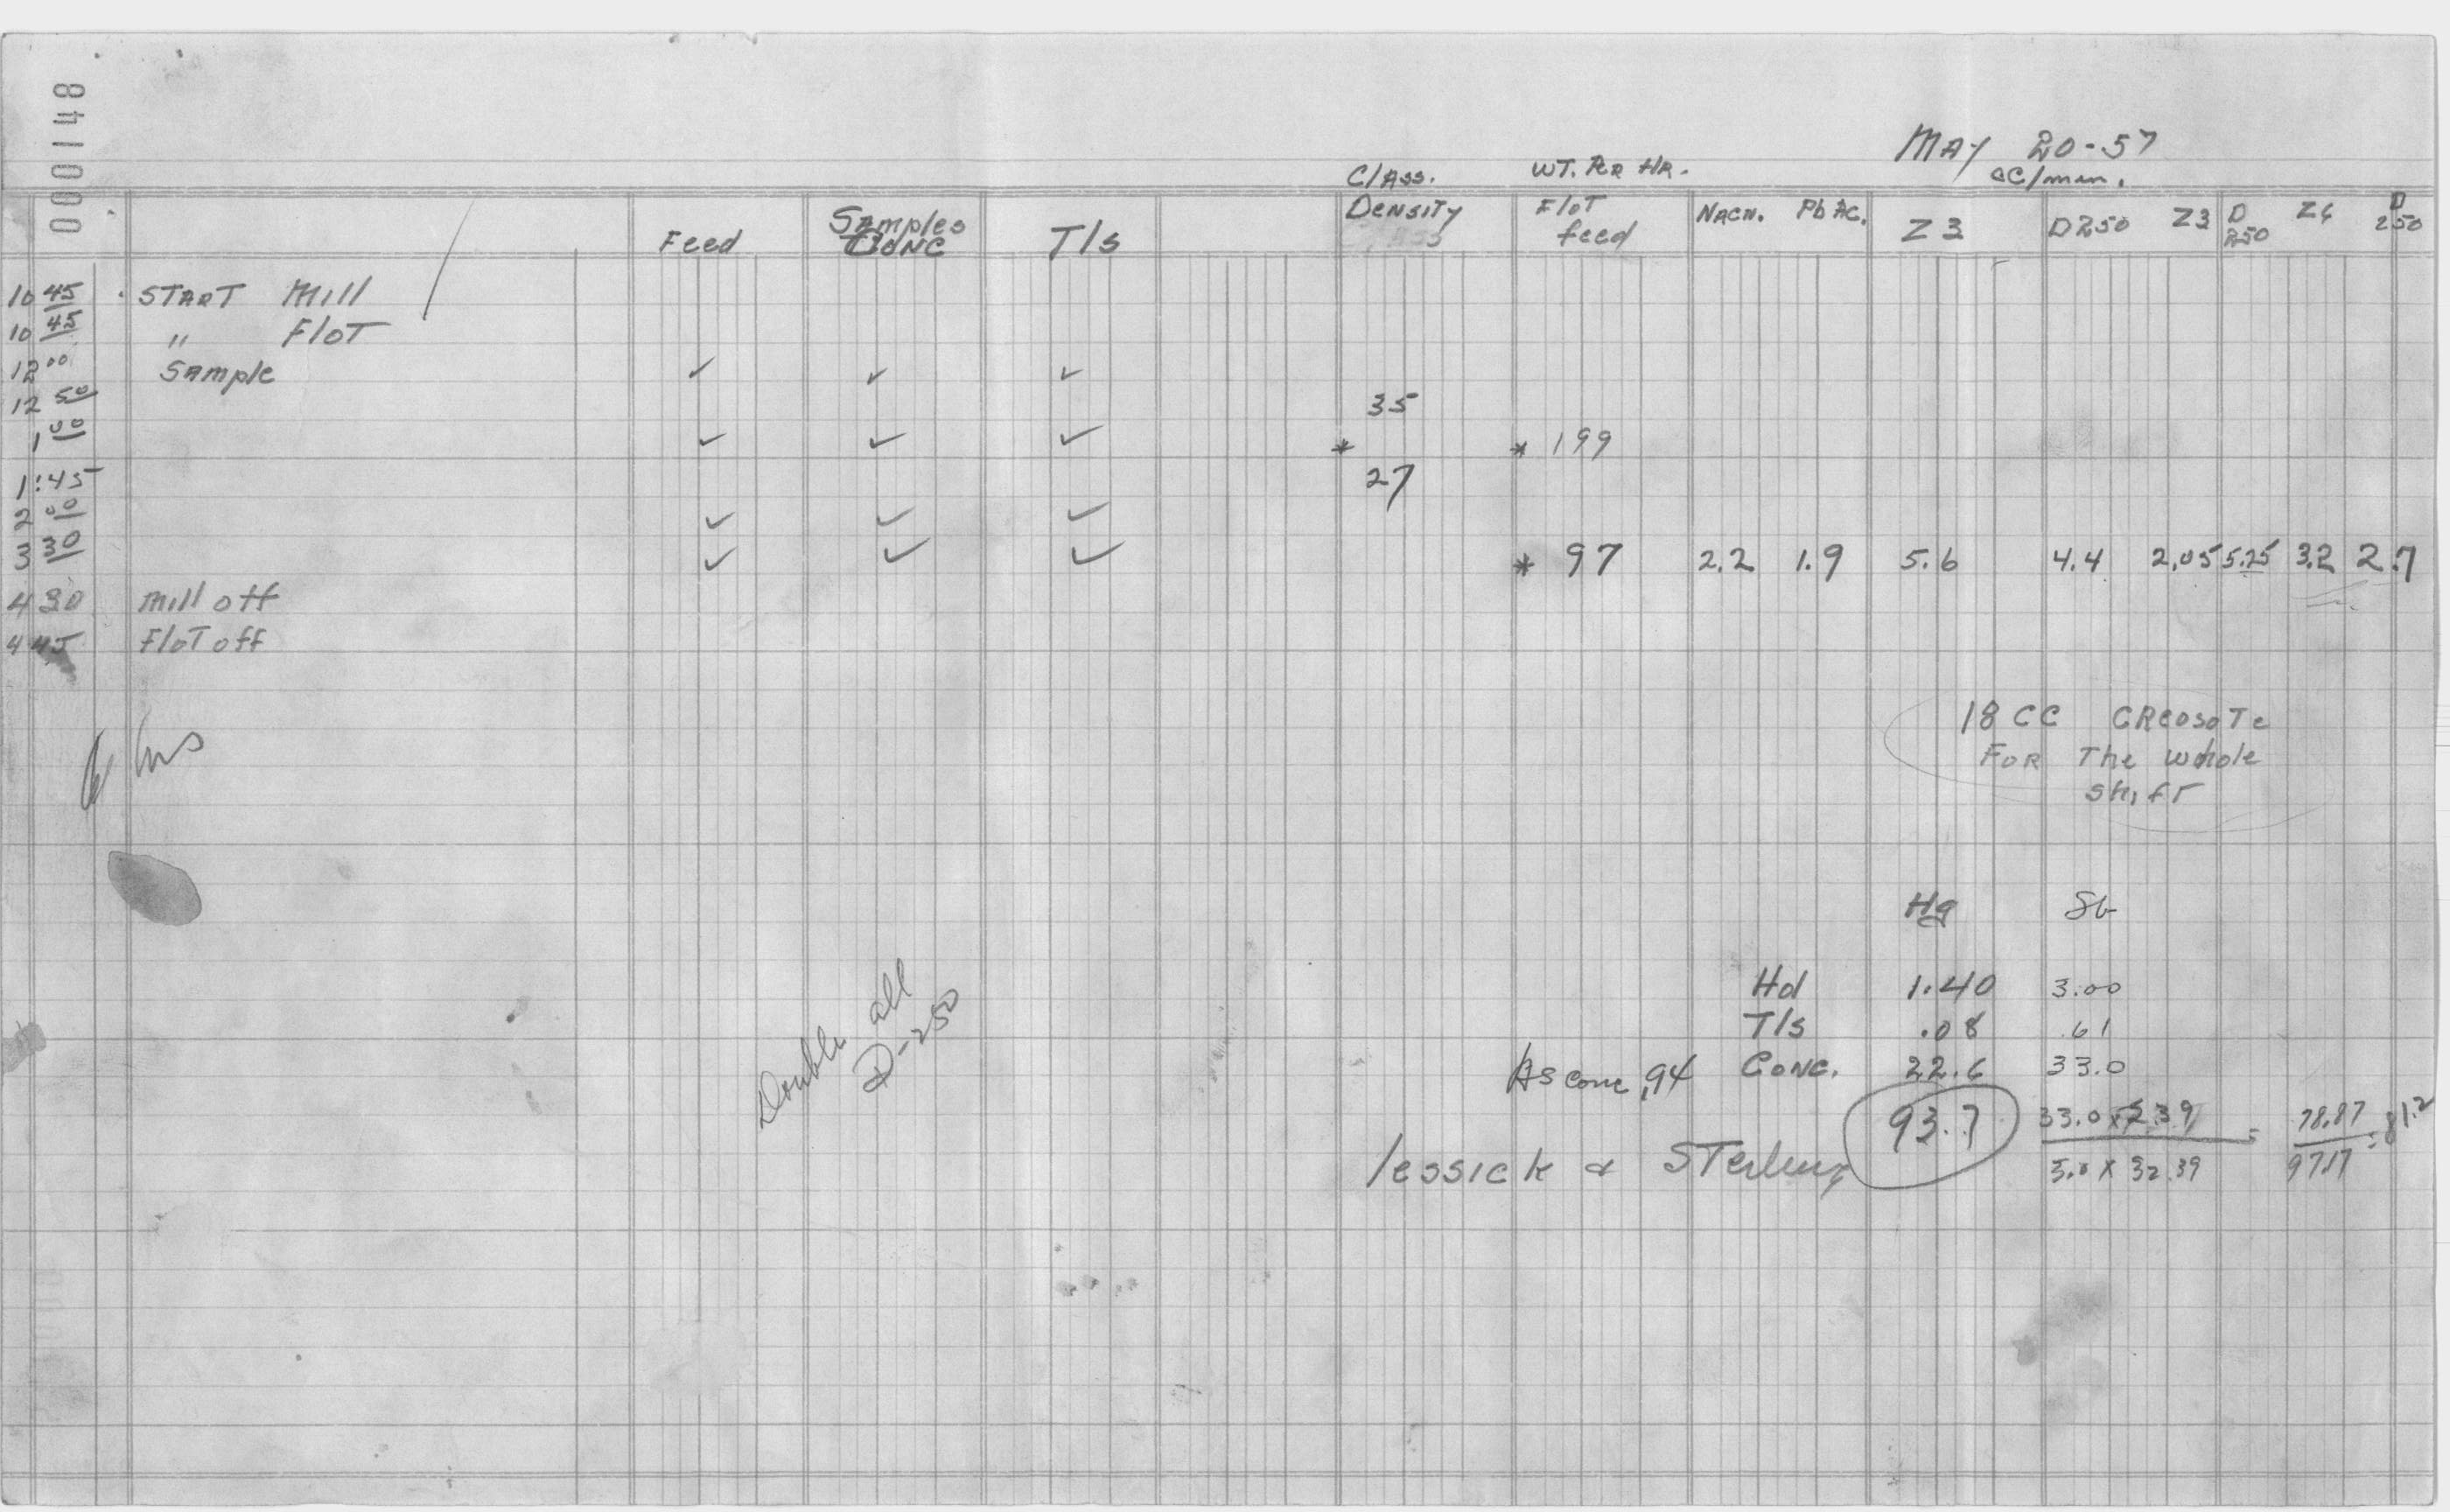 0000148
MAY 20-57
CLASS. WT. PER HR. CC/min.
Feed Samples CONC T/s DENSITY FLOT feed NACN. Pb AC. Z3 D250 Z3 D250 Z6 D250
10 45 START Mill
10 45 " FLOT
12 00 Sample ✓ ✓ ✓
12 50 35
1 00 ✓ ✓ ✓ * * 199
1:45 27
2 00 ✓ ✓ ✓
3 30 ✓ ✓ ✓ * 97 2.2 1.9 5.6 4.4 2.05 5.25 3.2 2.7
4 30 Mill off
4 45 FLOT off
6 hrs
18 CC CREOSOTE
FOR The whole
shift
Hg Sb
Hd 1.40 3.00
T/s .08 .61
As conc .94 CONC. 22.6 33.0
Double all
D-250
93.7 33.0 x 2.39 = 78.87 = 81.2
3.0 x 32.39 97.17
Lessick & STerling